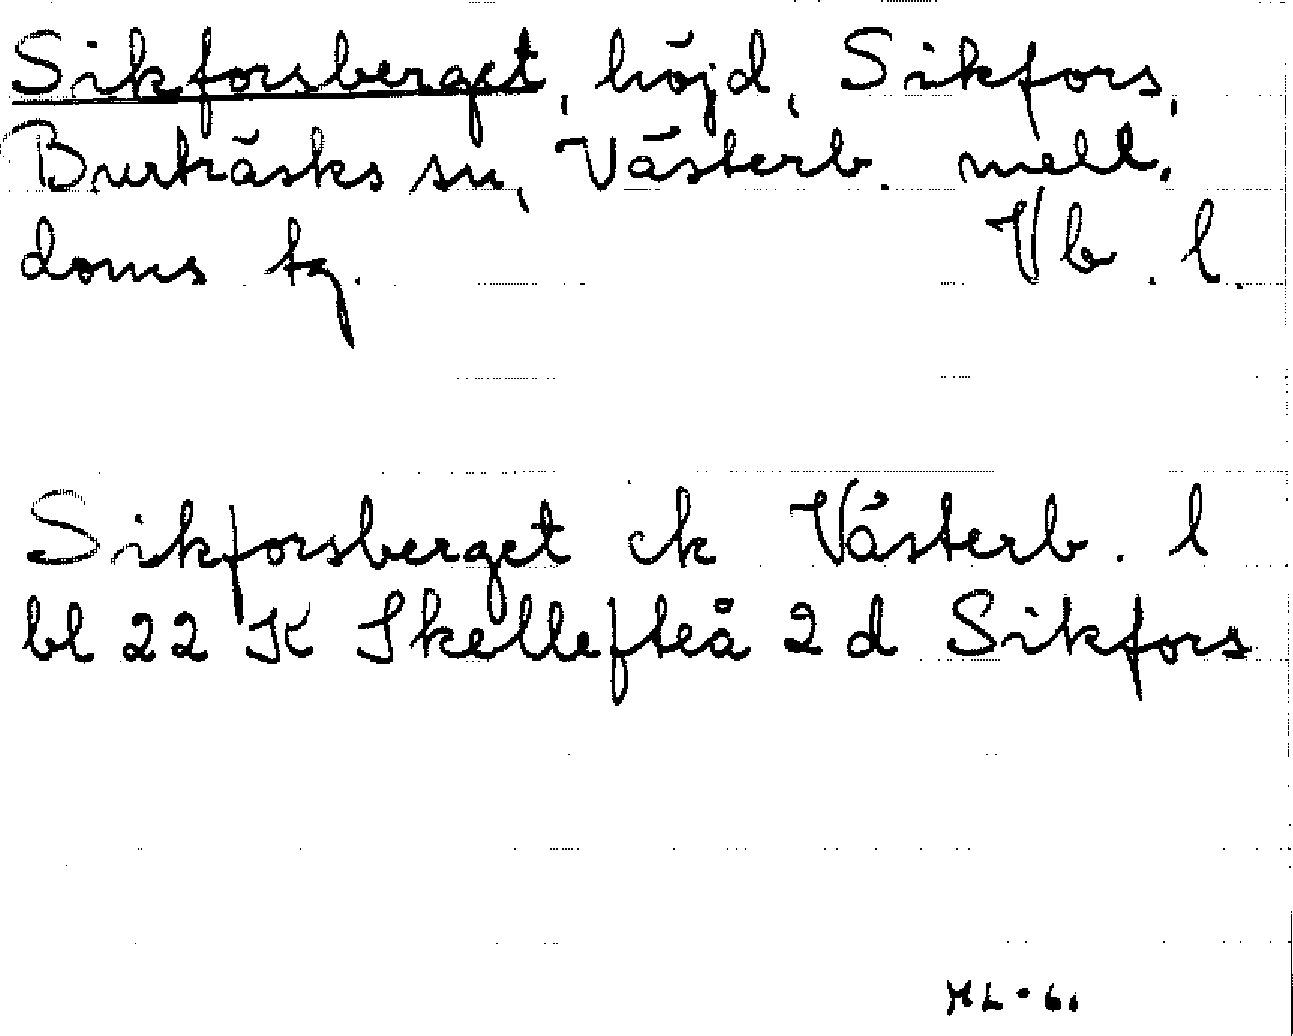 Sikforsberget, höjd, Sikfors,
Burträsks sn, Västerb. mell.
doms tg. Vb. l.
Sikforsberget ek Västerb. l
bl 22 K Skellefteå 2 d Sikfors